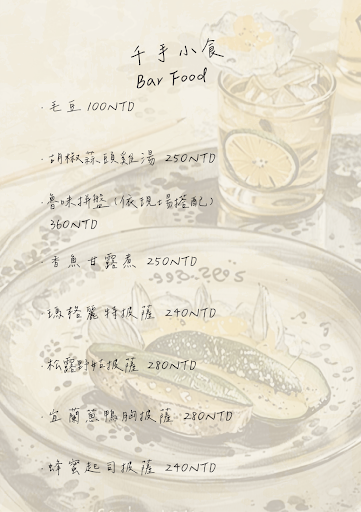 千手小食
Bar Food
·毛豆 100NTD
·胡椒蒜頭雞湯 250NTD
·魯味拼盤 (依現場搭配)
360NTD
·香魚甘露煮 250NTD
·瑪格麗特披薩 240NTD
·松露野菇披薩 280NTD
·宜蘭蔥鴨胸披薩 280NTD
·蜂蜜起司披薩 240NTD